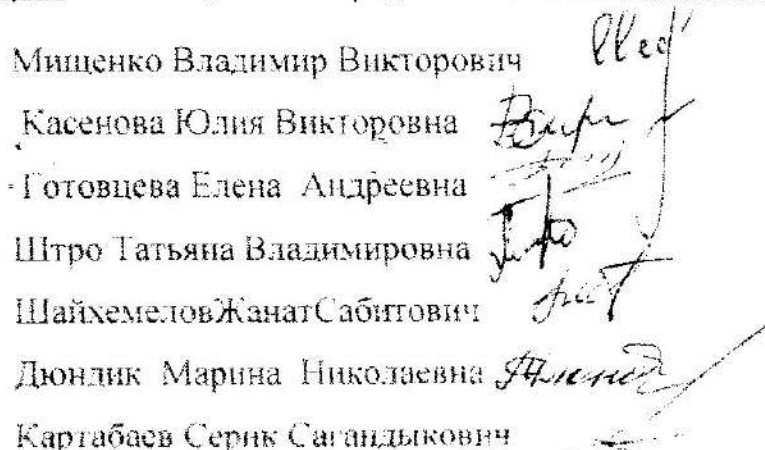 Мищенко Владимир Викторович
Касенова Юлия Викторовна
Готовцева Елена Андреевна
Штро Татьяна Владимировна
ШайхемеловЖанатСабитович
Дюндик Марина Николаевна
Картабаев Серик Сагандыкович